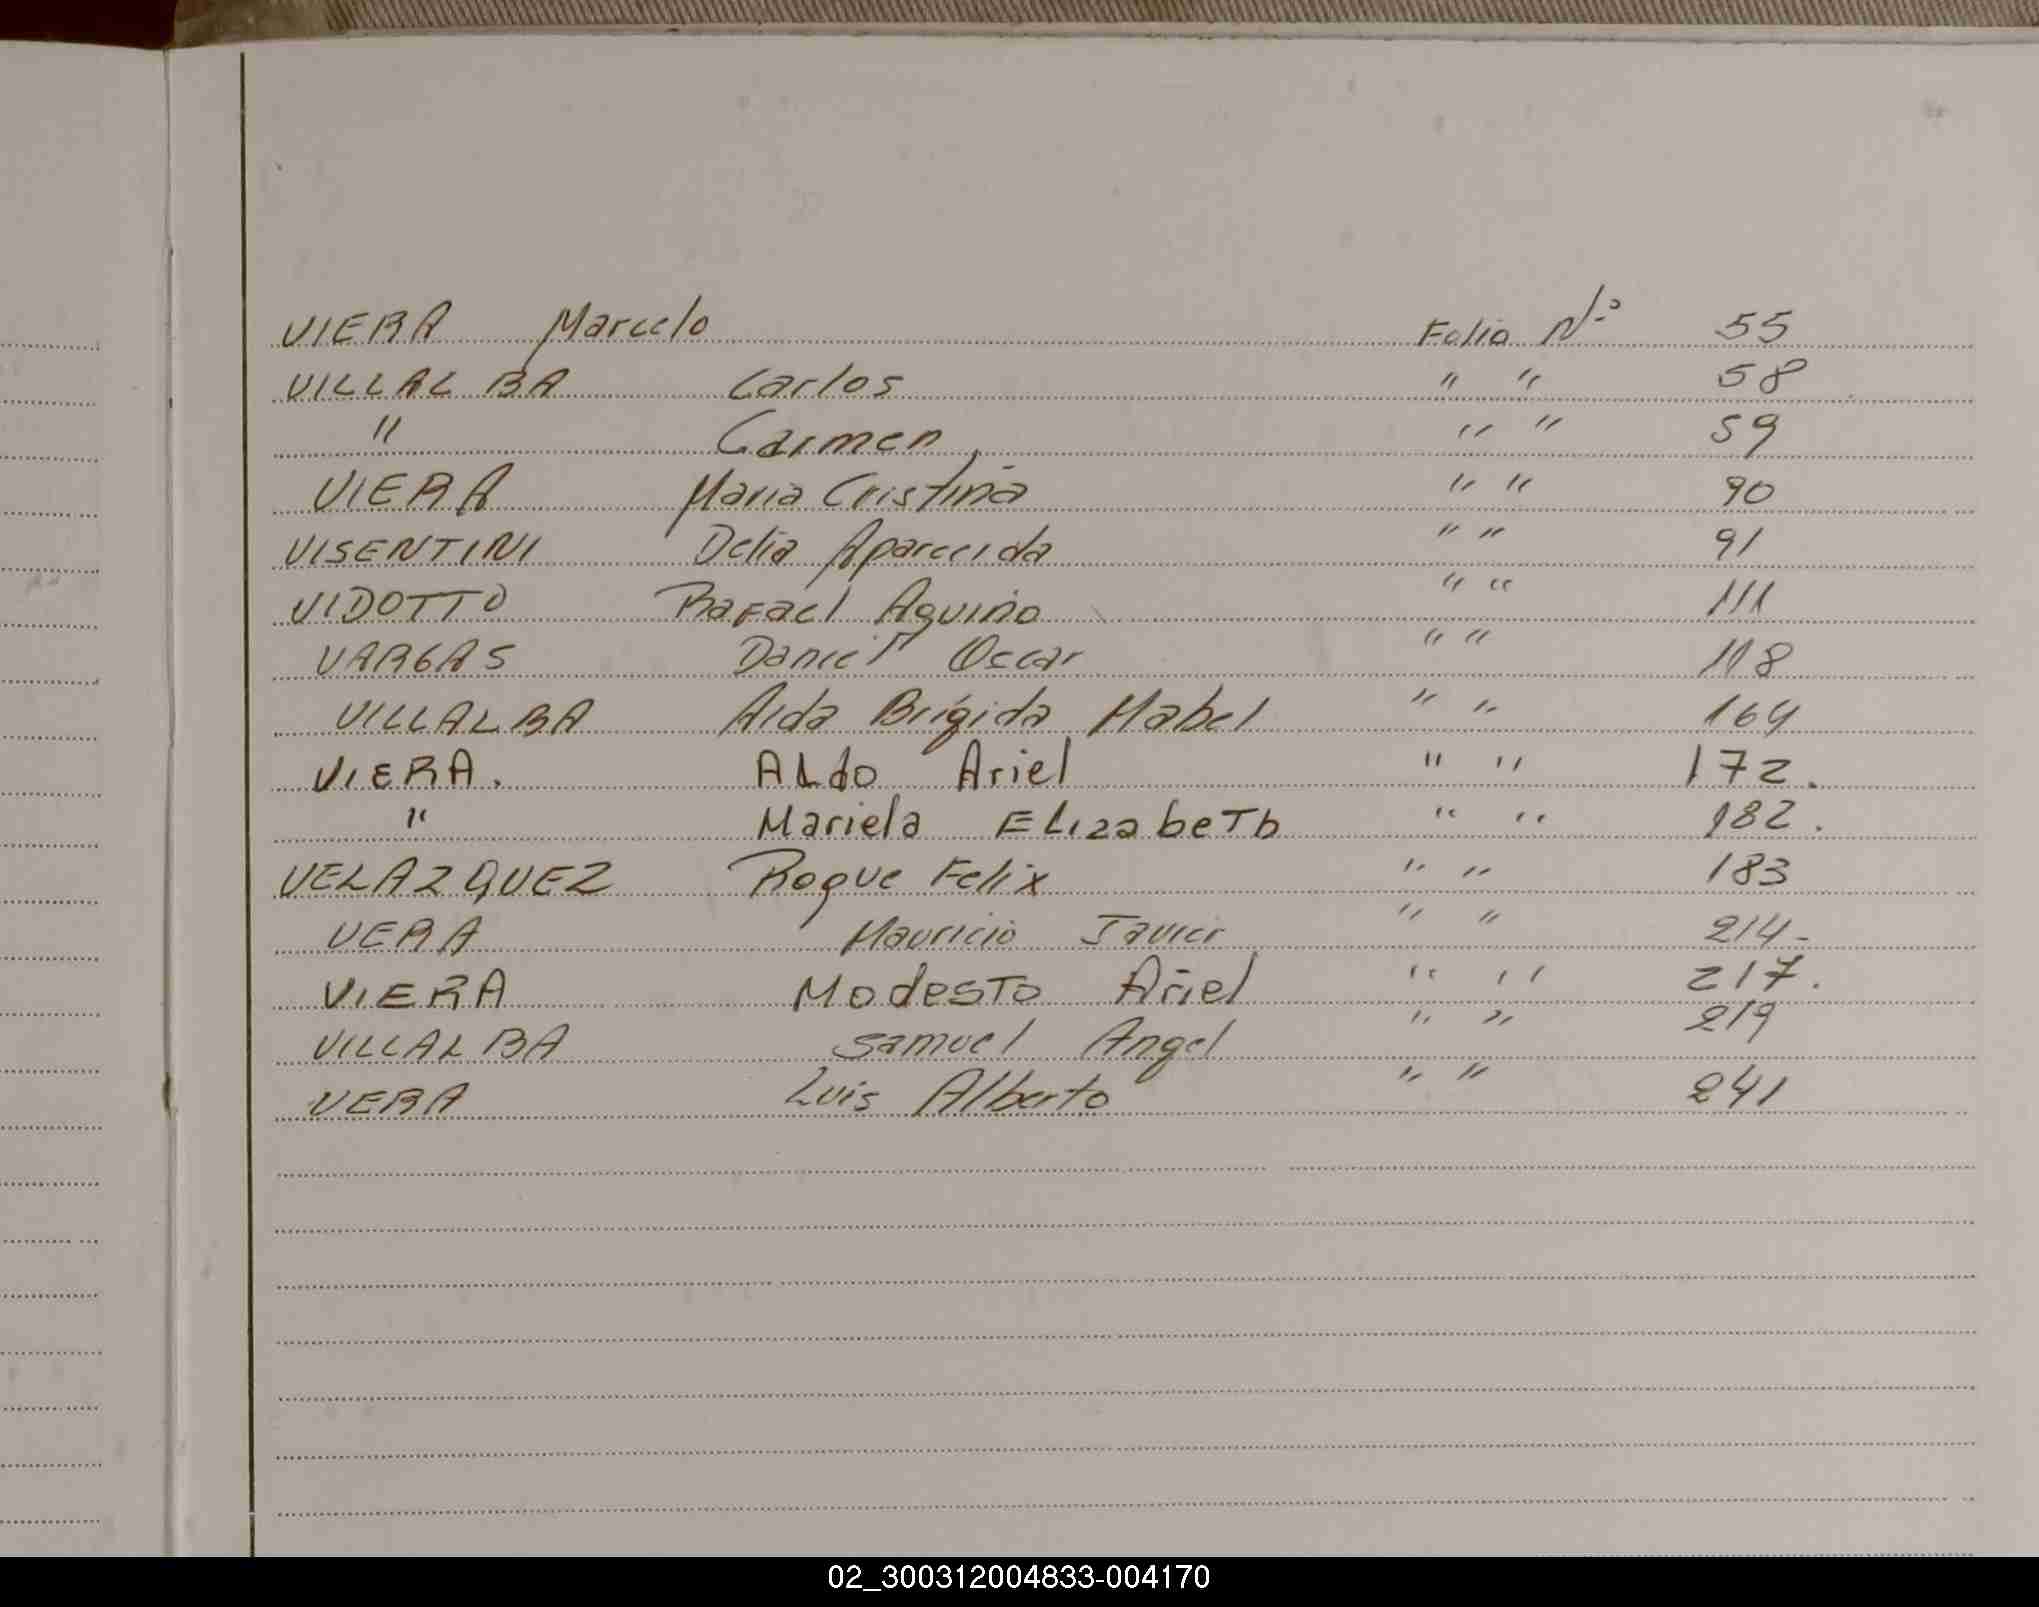 VIERA Marcelo Folio Nº 55
VILLALBA Carlos " " 58
" Carmen " " 59
VIERA Maria Cristina " " 90
VISENTINI Delia Aparecida " " 91
VIDOTTO Rafael Aquino " " 111
VARGAS Daniel Oscar " " 118
VILLALBA Alda Brigida Mabel " " 164
VIERA. ALdo Ariel " " 172.
" Mariela ELizabeTh " " 182.
VELAZQUEZ Roque Felix " " 183
VERA Mauricio Javier " " 214-
VIERA MODESTO Ariel " " 217.
VILLALBA Samuel Angel " " 219
VERA Luis Alberto " " 241
02_300312004833-004170